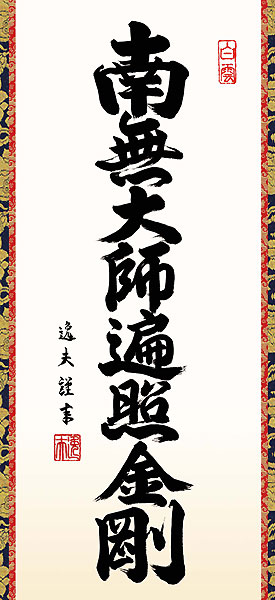 白雲
南無大師遍照金剛
逸夫謹書